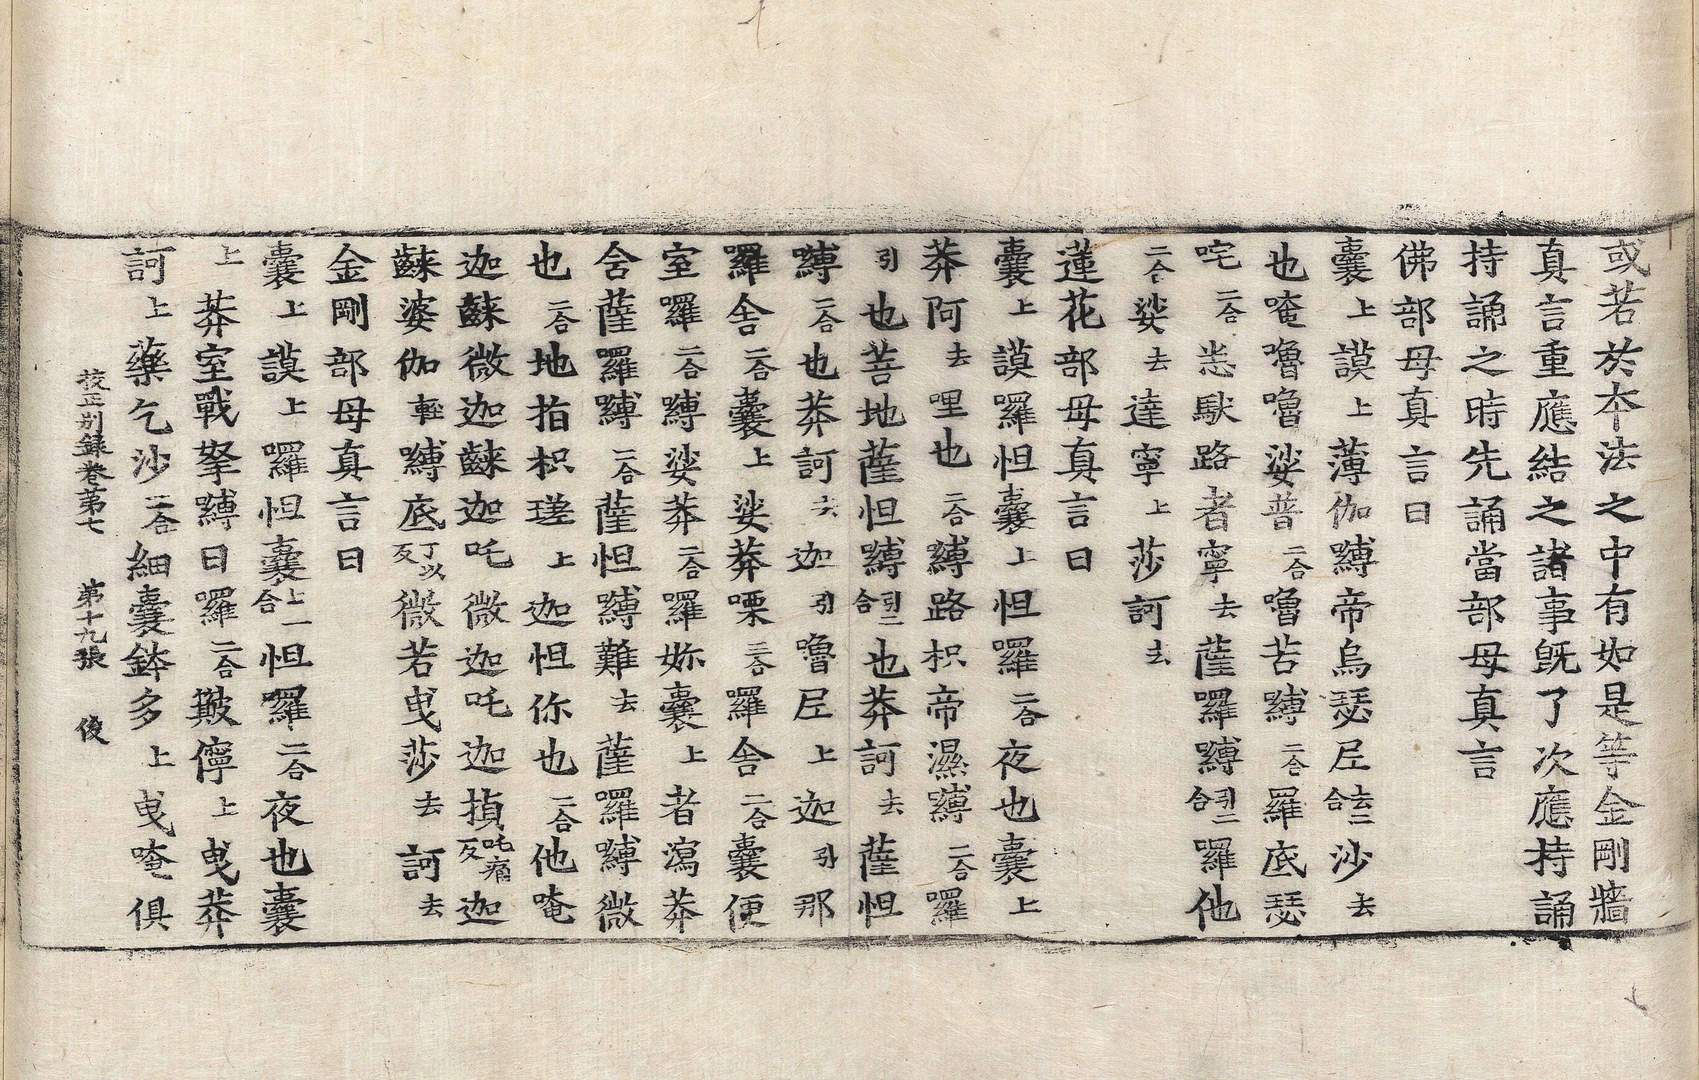 或若於本法之中有如是等金剛牆
真言重應結之諸事既了次應持誦
持誦之時先誦當部母真言
佛部母真言曰
囊上謨上薄伽縛帝烏瑟𡱝去二合沙去
也唵嚕嚕娑普二合嚕苫縛二合羅底瑟
咤二合悉馱路者寧去薩囉縛引二合囉他
二合娑去達寧上莎訶去
蓮花部母真言曰
囊上謨囉怛囊上怛囉二合夜也囊上
莽阿去哩也二合縛路枳帝濕縛二合囉
引也菩地薩怛縛引二合也莽訶去薩怛
縛二合也莽訶去迦引嚕𡰱上迦引那
囉舍二合囊上娑莽㗚二合囉舍二合囊便
室囉二合縛娑莽二合囉妳囊上者瀉莽
舍薩囉縛二合薩怛縛難去薩囉縛微
也二合地指枳瑳上迦怛你也二合他唵
迦䴾微迦䴾迦吒微迦吒迦揁吒痛反迦
䴾婆伽輕縛底丁以反微若曳莎去訶去
金剛部母真言曰
囊上謨上囉怛囊上一合怛囉二合夜也囊
上莽室戰拏縛日囉二合簸儜上曳莽
訶上藥乞沙二合細囊鉢多上曳唵俱
校正別錄卷第七　第十九張　俊